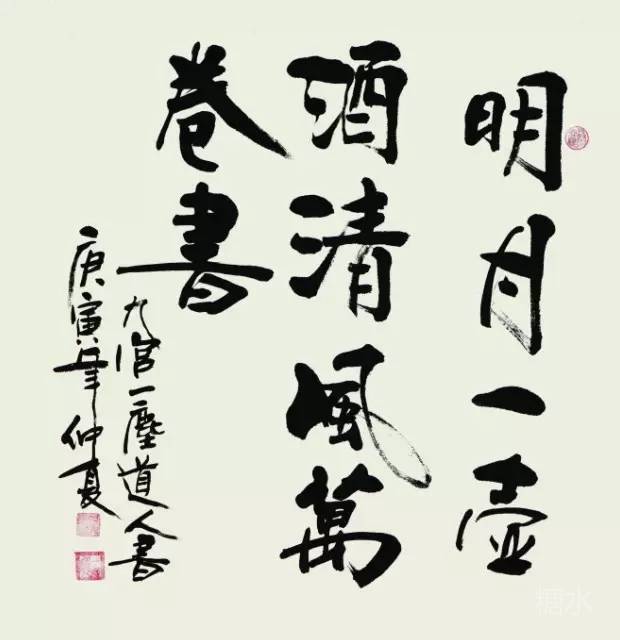 明月一壺
酒清風萬
卷書
九宮一塵道人書
庚寅年仲夏
糖水